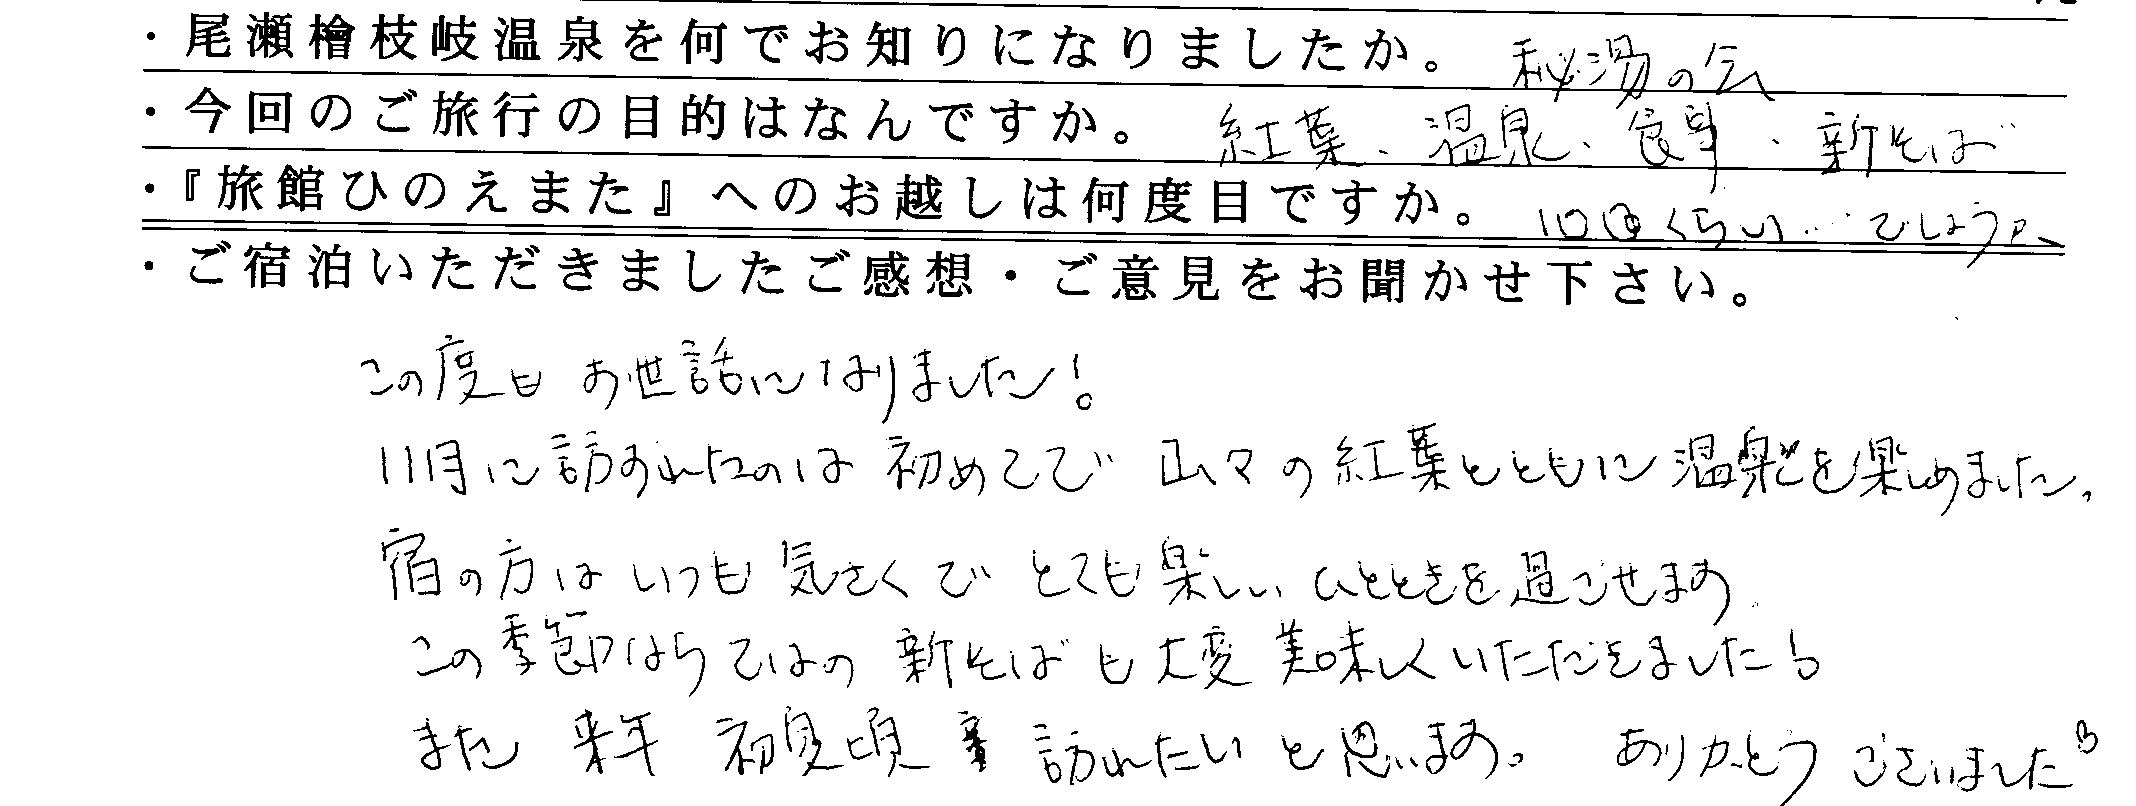 ・尾瀬檜枝岐温泉を何でお知りになりましたか。 秘湯の会
・今回のご旅行の目的はなんですか。 紅葉、温泉、食事、新そば
・『旅館ひのえまた』へのお越しは何度目ですか。 10回くらい…でしょうか
・ご宿泊いただきましたご感想・ご意見をお聞かせ下さい。
この度も お世話になりました！
11月に訪ずれたのは 初めてで 山々の紅葉とともに 温泉を楽しめました。
宿の方は いつも 気さくで とても楽しい ひとときを過ごせます
この季節ならではの 新そばも 大変 美味しくいただきました。
また 来年 初夏頃 訪れたい と思います。 ありがとう ございました